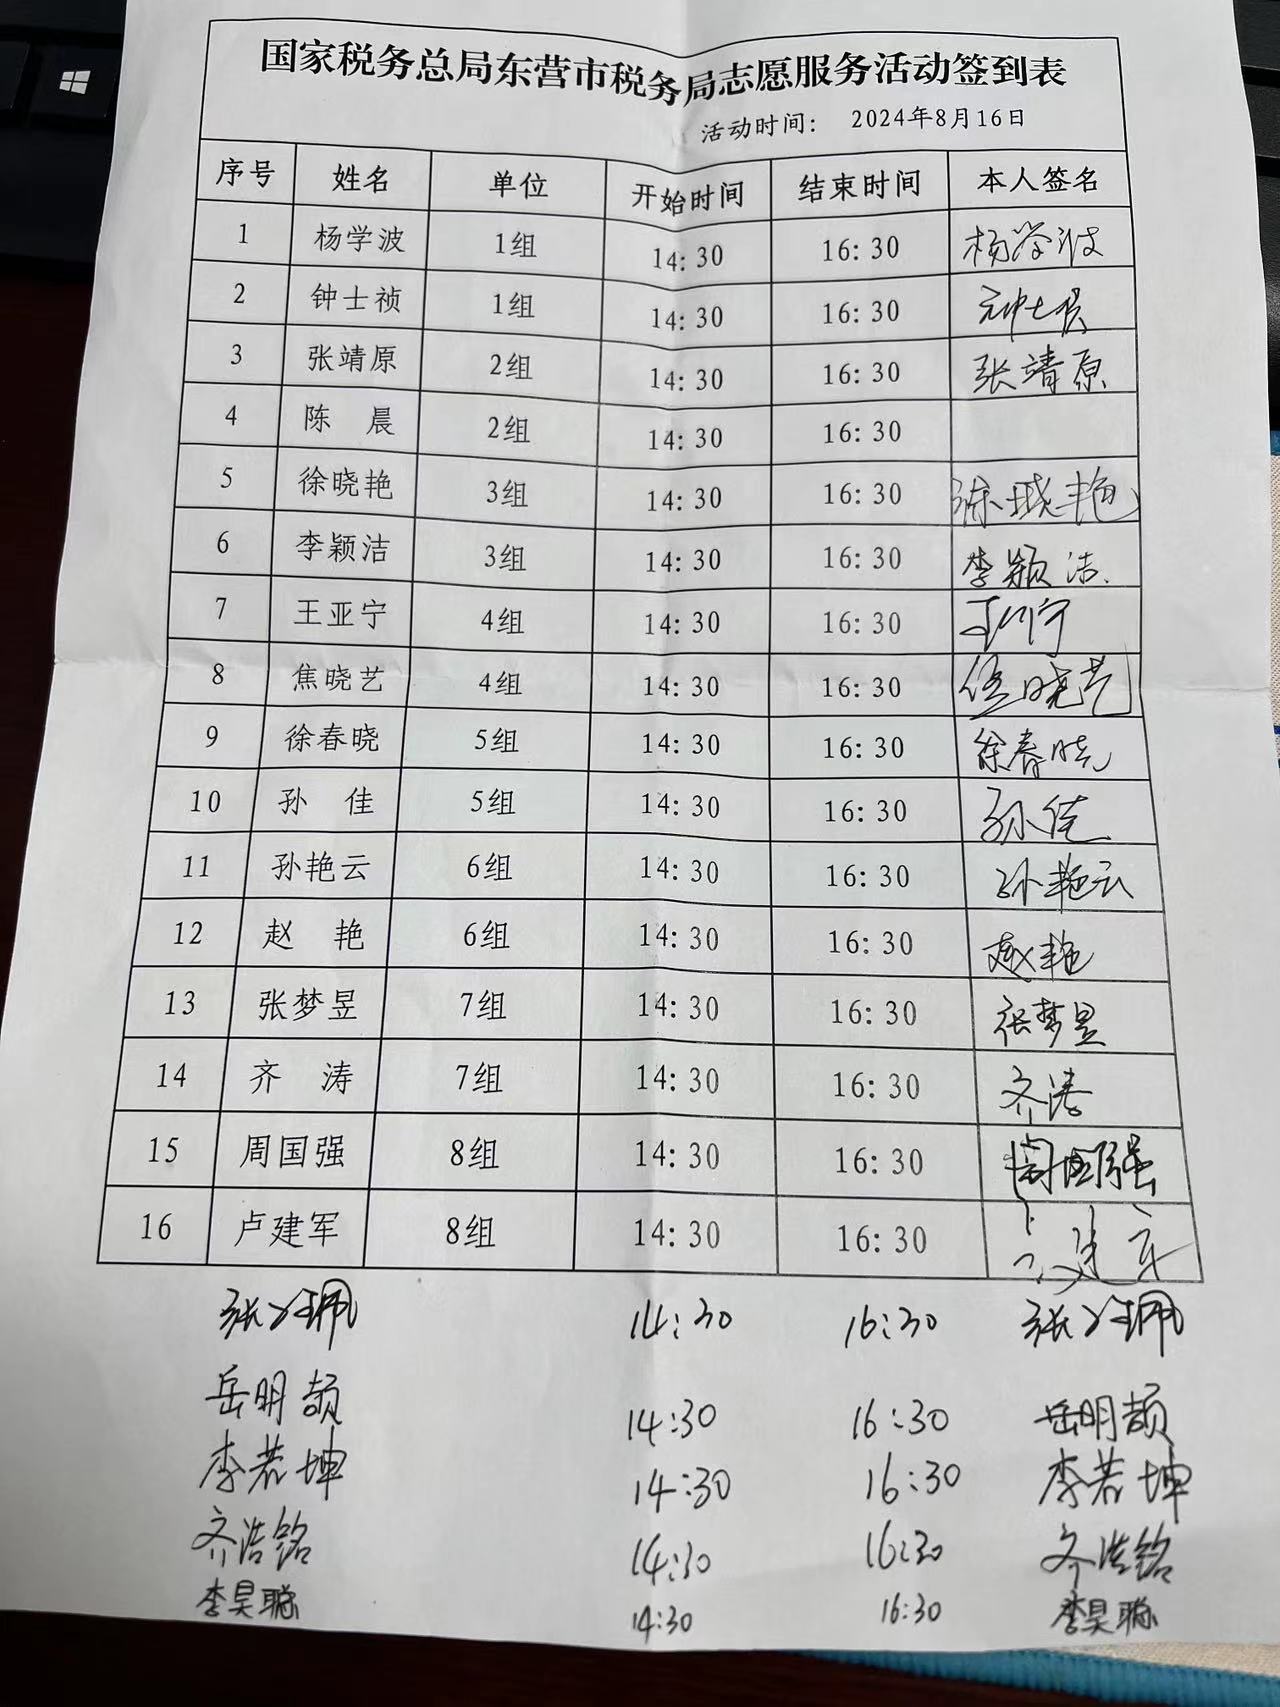 国家税务总局东营市税务局志愿服务活动签到表
活动时间： 2024年8月16日
序号 姓名 单位 开始时间 结束时间 本人签名
1 杨学波 1组 14：30 16：30 杨学波
2 钟士祯 1组 14：30 16：30 钟士祯
3 张靖原 2组 14：30 16：30 张靖原
4 陈 晨 2组 14：30 16：30
5 徐晓艳 3组 14：30 16：30 徐晓艳
6 李颖洁 3组 14：30 16：30 李颖洁
7 王亚宁 4组 14：30 16：30 王亚宁
8 焦晓艺 4组 14：30 16：30 焦晓艺
9 徐春晓 5组 14：30 16：30 徐春晓
10 孙 佳 5组 14：30 16：30 孙佳
11 孙艳云 6组 14：30 16：30 孙艳云
12 赵 艳 6组 14：30 16：30 赵艳
13 张梦昱 7组 14：30 16：30 张梦昱
14 齐 涛 7组 14：30 16：30 齐涛
15 周国强 8组 14：30 16：30 周国强
16 卢建军 8组 14：30 16：30 卢建军
14:30 16:30
岳明颉 14:30 16:30 岳明颉
李若坤 14:30 16:30 李若坤
齐浩铭 14:30 16:30 齐浩铭
李昊聪 14:30 16:30 李昊聪